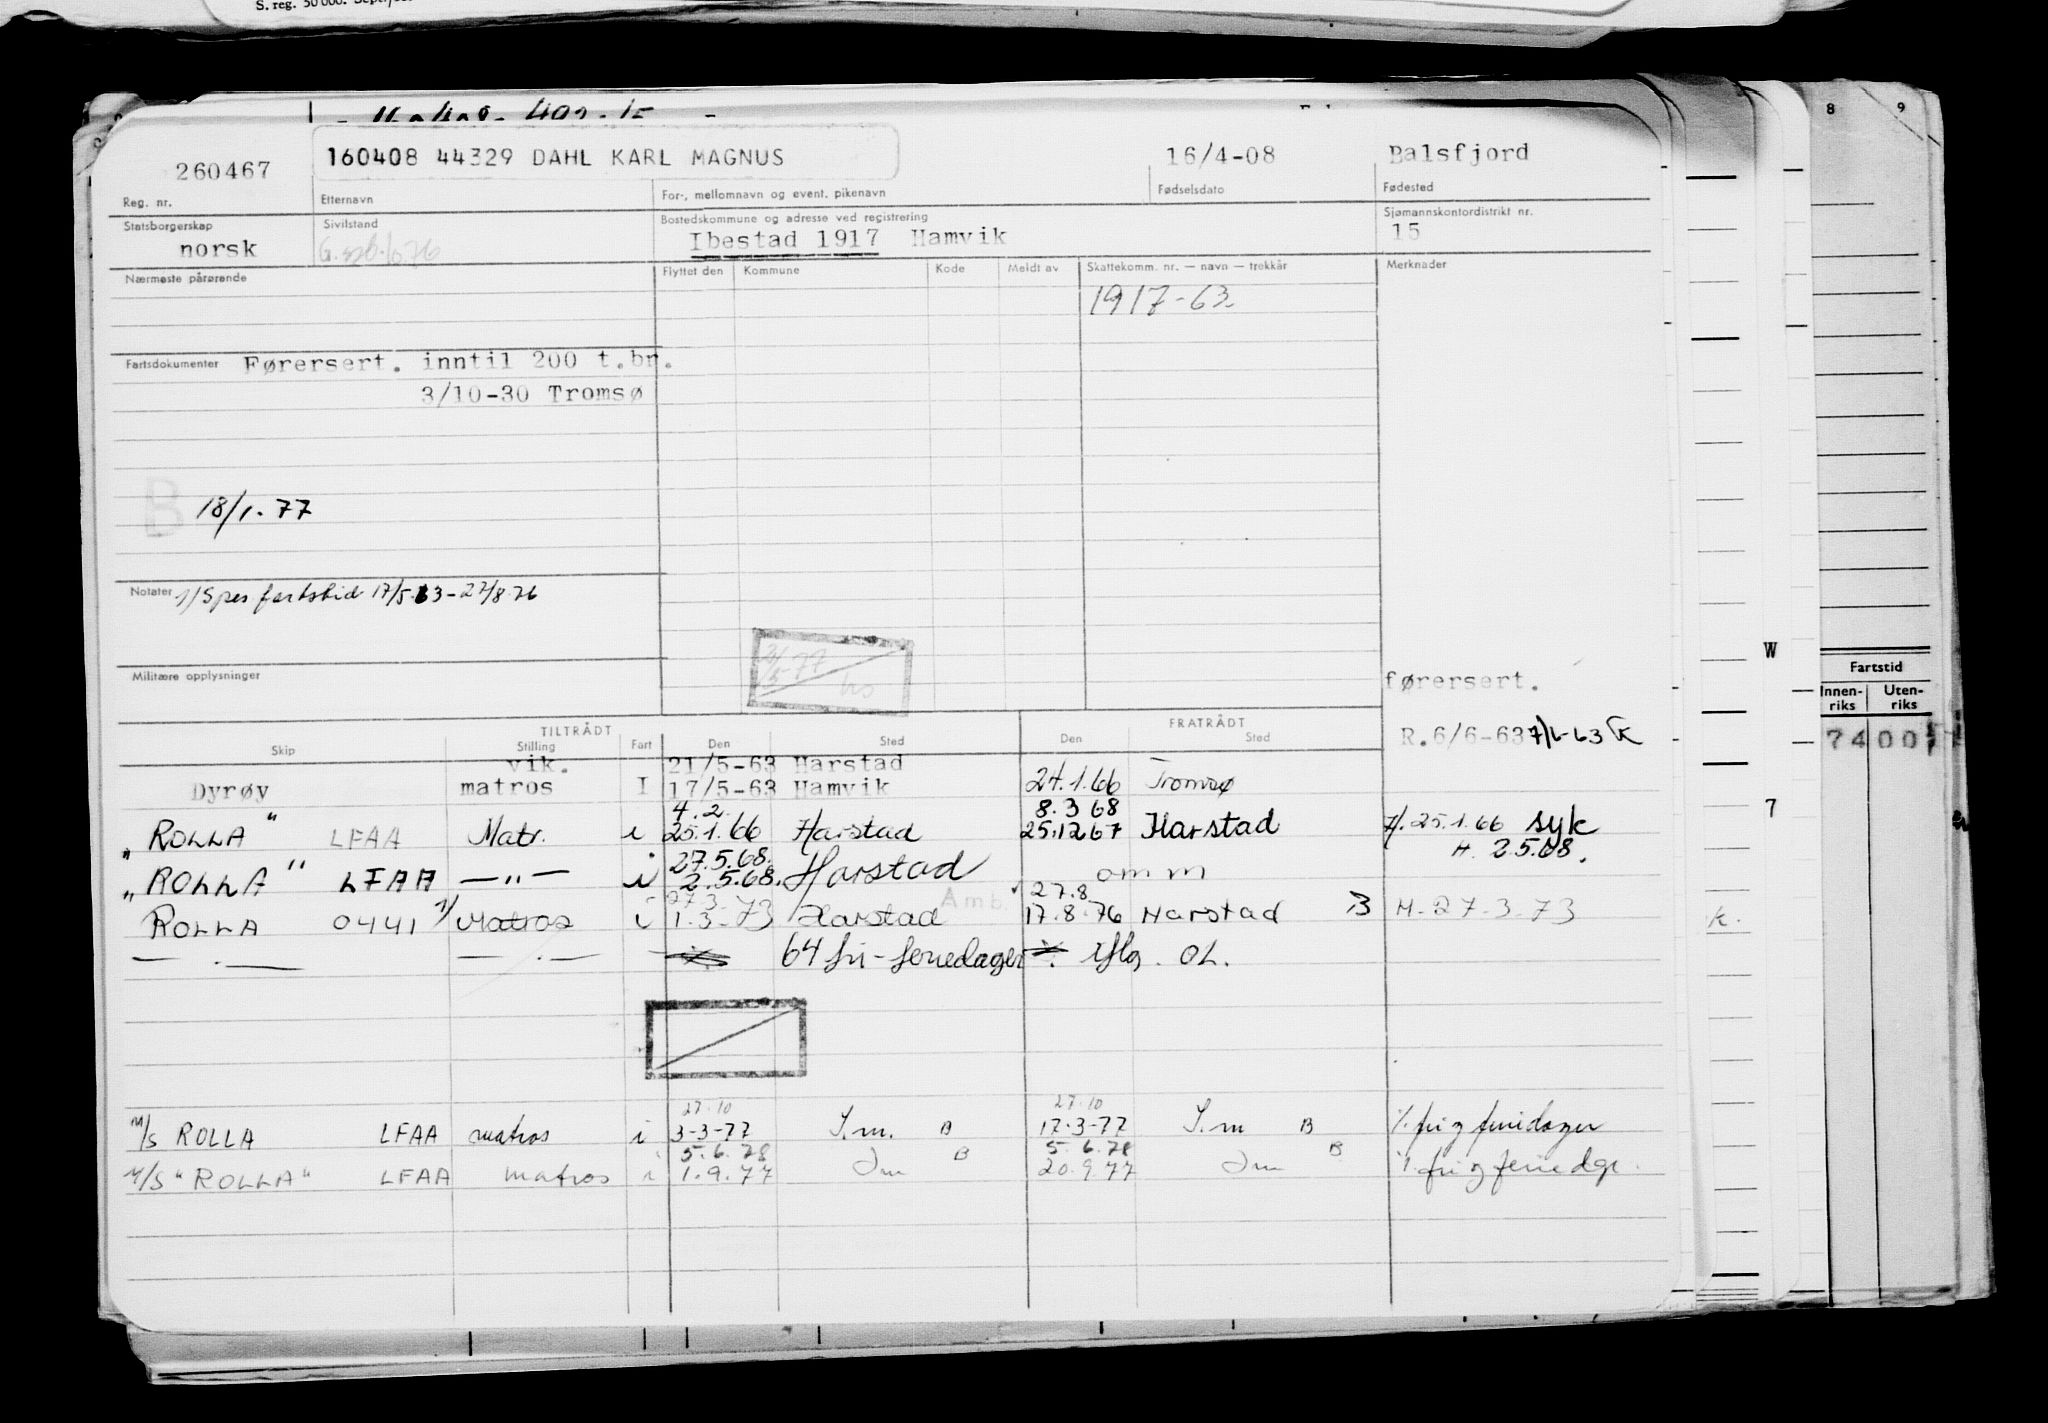 S. reg. 50 000.
8 9
260467 160408 44329 DAHL KARL MAGNUS 16/4-08 Balsfjord
Reg. nr. Etternavn For-, mellomnavn og event. pikenavn Fødselsdato Fødested
Statsborgerskap Sivilstand Bostedskommune og adresse ved registrering Sjømannskontordistrikt nr.
norsk Ibestad 1917 Hamvik 15
Nærmeste pårørende Flyttet den Kommune Kode Meldt av Skattekomm. nr. — navn — trekkår Merknader
1917-63
Fartsdokumenter Førersert. inntil 200 t.br.
3/10-30 Tromsø
B 18/1.77
Notater 1/ Spes fartstid 17/5.63-27/8.76
21/5-77
W
Militære opplysninger førersert.
Fartstid
Innenriks Utenriks
TILTRÅDT FRATRÅDT
Skip Stilling Fart Den Sted Den Sted R.6/6-63 7/6-63 K
7400
vik. 21/5-63 Harstad
Dyrøy matros I 17/5-63 Hamvik 24.1.66 Tromsø
4.2. 8.3 68
7
"ROLLA" LFAA Matr. i 25.1.66 Harstad 25.12 67 Harstad H. 25.1.66 syk
27.5.68. H. 2.5.68.
"ROLLA" LFAA —"— i 2.5.68. Harstad omm
27.3. Amb. 27.8
ROLLA 0441 1/ Matros i 1.3-73 Harstad 17.8.76 Harstad B H-27-3-73
k.
— . — — . — 64 fri-feriedager iflg. OL.
27.10 27.10
M/S ROLLA LFAA matros i 3-3-77 S.m. B 17.3-77 S.m B %. fri g feriedager
5.6.78 B 5.6.78 B
M/S "ROLLA" LFAA matros i 1.9.77 Sm 20.9.77 Sm %. fri g feriedgr.